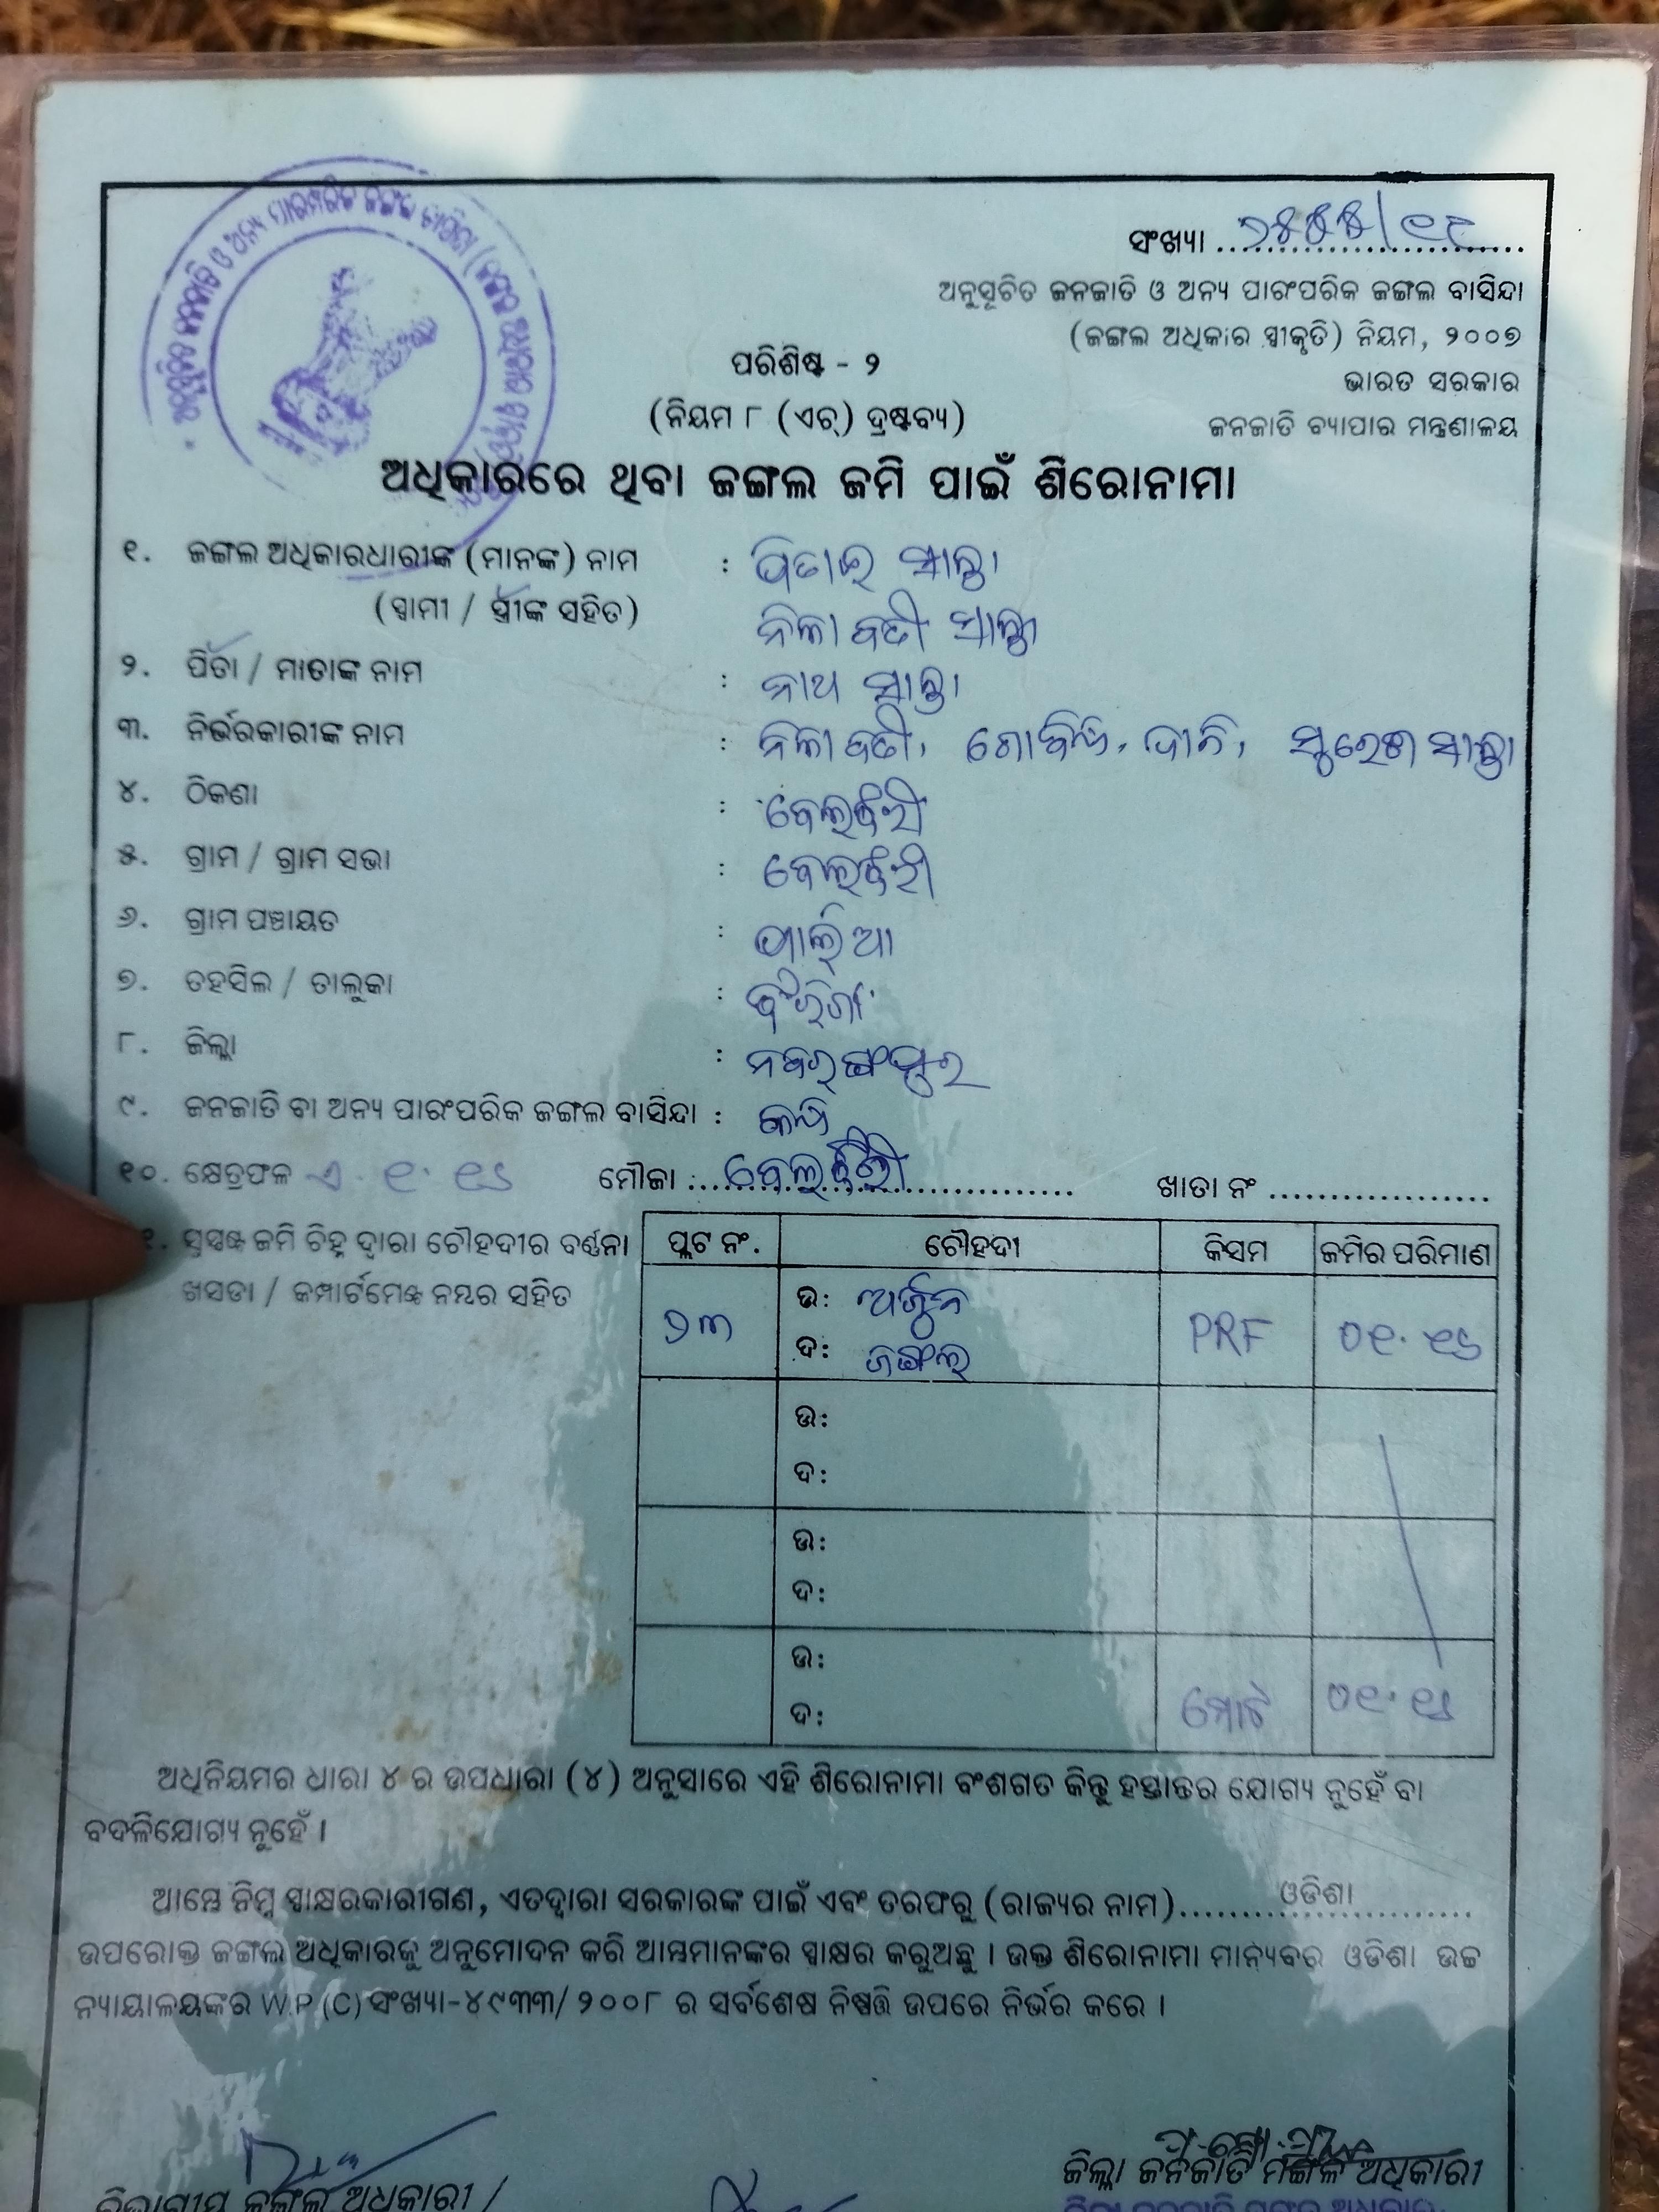 ସଂଖ୍ୟା ୨୫୫୫/୧୯
ଅନୁସୂଚିତ ଜନଜାତି ଓ ଅନ୍ୟ ପାରଂପରିକ ଜଙ୍ଗଲ ବାସିନ୍ଦା
(ଜଙ୍ଗଲ ଅଧିକାର ସ୍ୱୀକୃତି) ନିୟମ, ୨୦୦୭
ଭାରତ ସରକାର
ଜନଜାତି ବ୍ୟାପାର ମନ୍ତ୍ରଣାଳୟ
ପରିଶିଷ୍ଟ - ୨
(ନିୟମ ୮ (ଏଚ୍) ଦ୍ରଷ୍ଟବ୍ୟ)
ଅଧିକାରରେ ଥିବା ଜଙ୍ଗଲ ଜମି ପାଇଁ ଶିରୋନାମା
୧. ଜଙ୍ଗଲ ଅଧିକାରଧାରୀଙ୍କ (ମାନଙ୍କ) ନାମ :
(ସ୍ୱାମୀ / ସ୍ତ୍ରୀଙ୍କ ସହିତ) ନିଳାବତୀ
୨. ପିତା / ମାତାଙ୍କ ନାମ : ନାଥ
୩. ନିର୍ଭରକାରୀଙ୍କ ନାମ : ନିଳାବତୀ, ଗୋବିନ୍ଦ, ସୁରେଶ
୪. ଠିକଣା :
୫. ଗ୍ରାମ / ଗ୍ରାମ ସଭା :
୬. ଗ୍ରାମ ପଞ୍ଚାୟତ : ପାଲିଆ
୭. ତହସିଲ / ତାଲୁକା : ଝରିଗାଁ
୮. ଜିଲ୍ଲା : ନବରଙ୍ଗପୁର
୯. ଜନଜାତି ବା ଅନ୍ୟ ପାରଂପରିକ ଜଙ୍ଗଲ ବାସିନ୍ଦା : କନ୍ଧ
୧୦. କ୍ଷେତ୍ରଫଳ ଏ. ୧.୧୬ ମୌଜା ଖାତା ନଂ
ସ୍ୱତନ୍ତ୍ର ଜମି ଚିହ୍ନ ଦ୍ୱାରା ଚୌହଦୀର ବର୍ଣ୍ଣନା
ଖସଡା / କମ୍ପାର୍ଟମେଣ୍ଟ ନମ୍ବର ସହିତ
ପ୍ଲଟ ନଂ. ଚୌହଦୀ କିସମ ଜମିର ପରିମାଣ
୨୩ ଉ: ଅର୍ଜୁନ PRF ୦୧.୧୬
ଦ: ଜଙ୍ଗଲ
ଉ:
ଦ:
ଉ:
ଦ:
ଉ:
ଦ: ମୋଟ ୦୧.୧୬
ଅଧିନିୟମର ଧାରା ୪ ର ଉପଧାରା (୪) ଅନୁସାରେ ଏହି ଶିରୋନାମା ବଂଶଗତ କିନ୍ତୁ ହସ୍ତାନ୍ତର ଯୋଗ୍ୟ ନୁହେଁ ବା
ବଦଳିଯୋଗ୍ୟ ନୁହେଁ ।
ଆମ୍ଭେ ନିମ୍ନ ସ୍ୱାକ୍ଷରକାରୀଗଣ, ଏତଦ୍ୱାରା ସରକାରଙ୍କ ପାଇଁ ଏବଂ ତରଫରୁ (ରାଜ୍ୟର ନାମ) ଓଡିଶା
ଉପରୋକ୍ତ ଜଙ୍ଗଲ ଅଧିକାରକୁ ଅନୁମୋଦନ କରି ଆମ୍ଭମାନଙ୍କର ସ୍ୱାକ୍ଷର କରୁଅଛୁ । ଉକ୍ତ ଶିରୋନାମା ମାନ୍ୟବର ଓଡିଶା ଉଚ୍ଚ
ନ୍ୟାୟାଳୟଙ୍କର W.P (C) ସଂଖ୍ୟା-୪୯୩୩/ ୨୦୦୮ ର ସର୍ବଶେଷ ନିଷ୍ପତ୍ତି ଉପରେ ନିର୍ଭର କରେ ।
ଜିଲ୍ଲା ଜନଜାତି ମଙ୍ଗଳ ଅଧିକାରୀ
ବିଭାଗୀୟ ଜଙ୍ଗଲ ଅଧିକାରୀ /